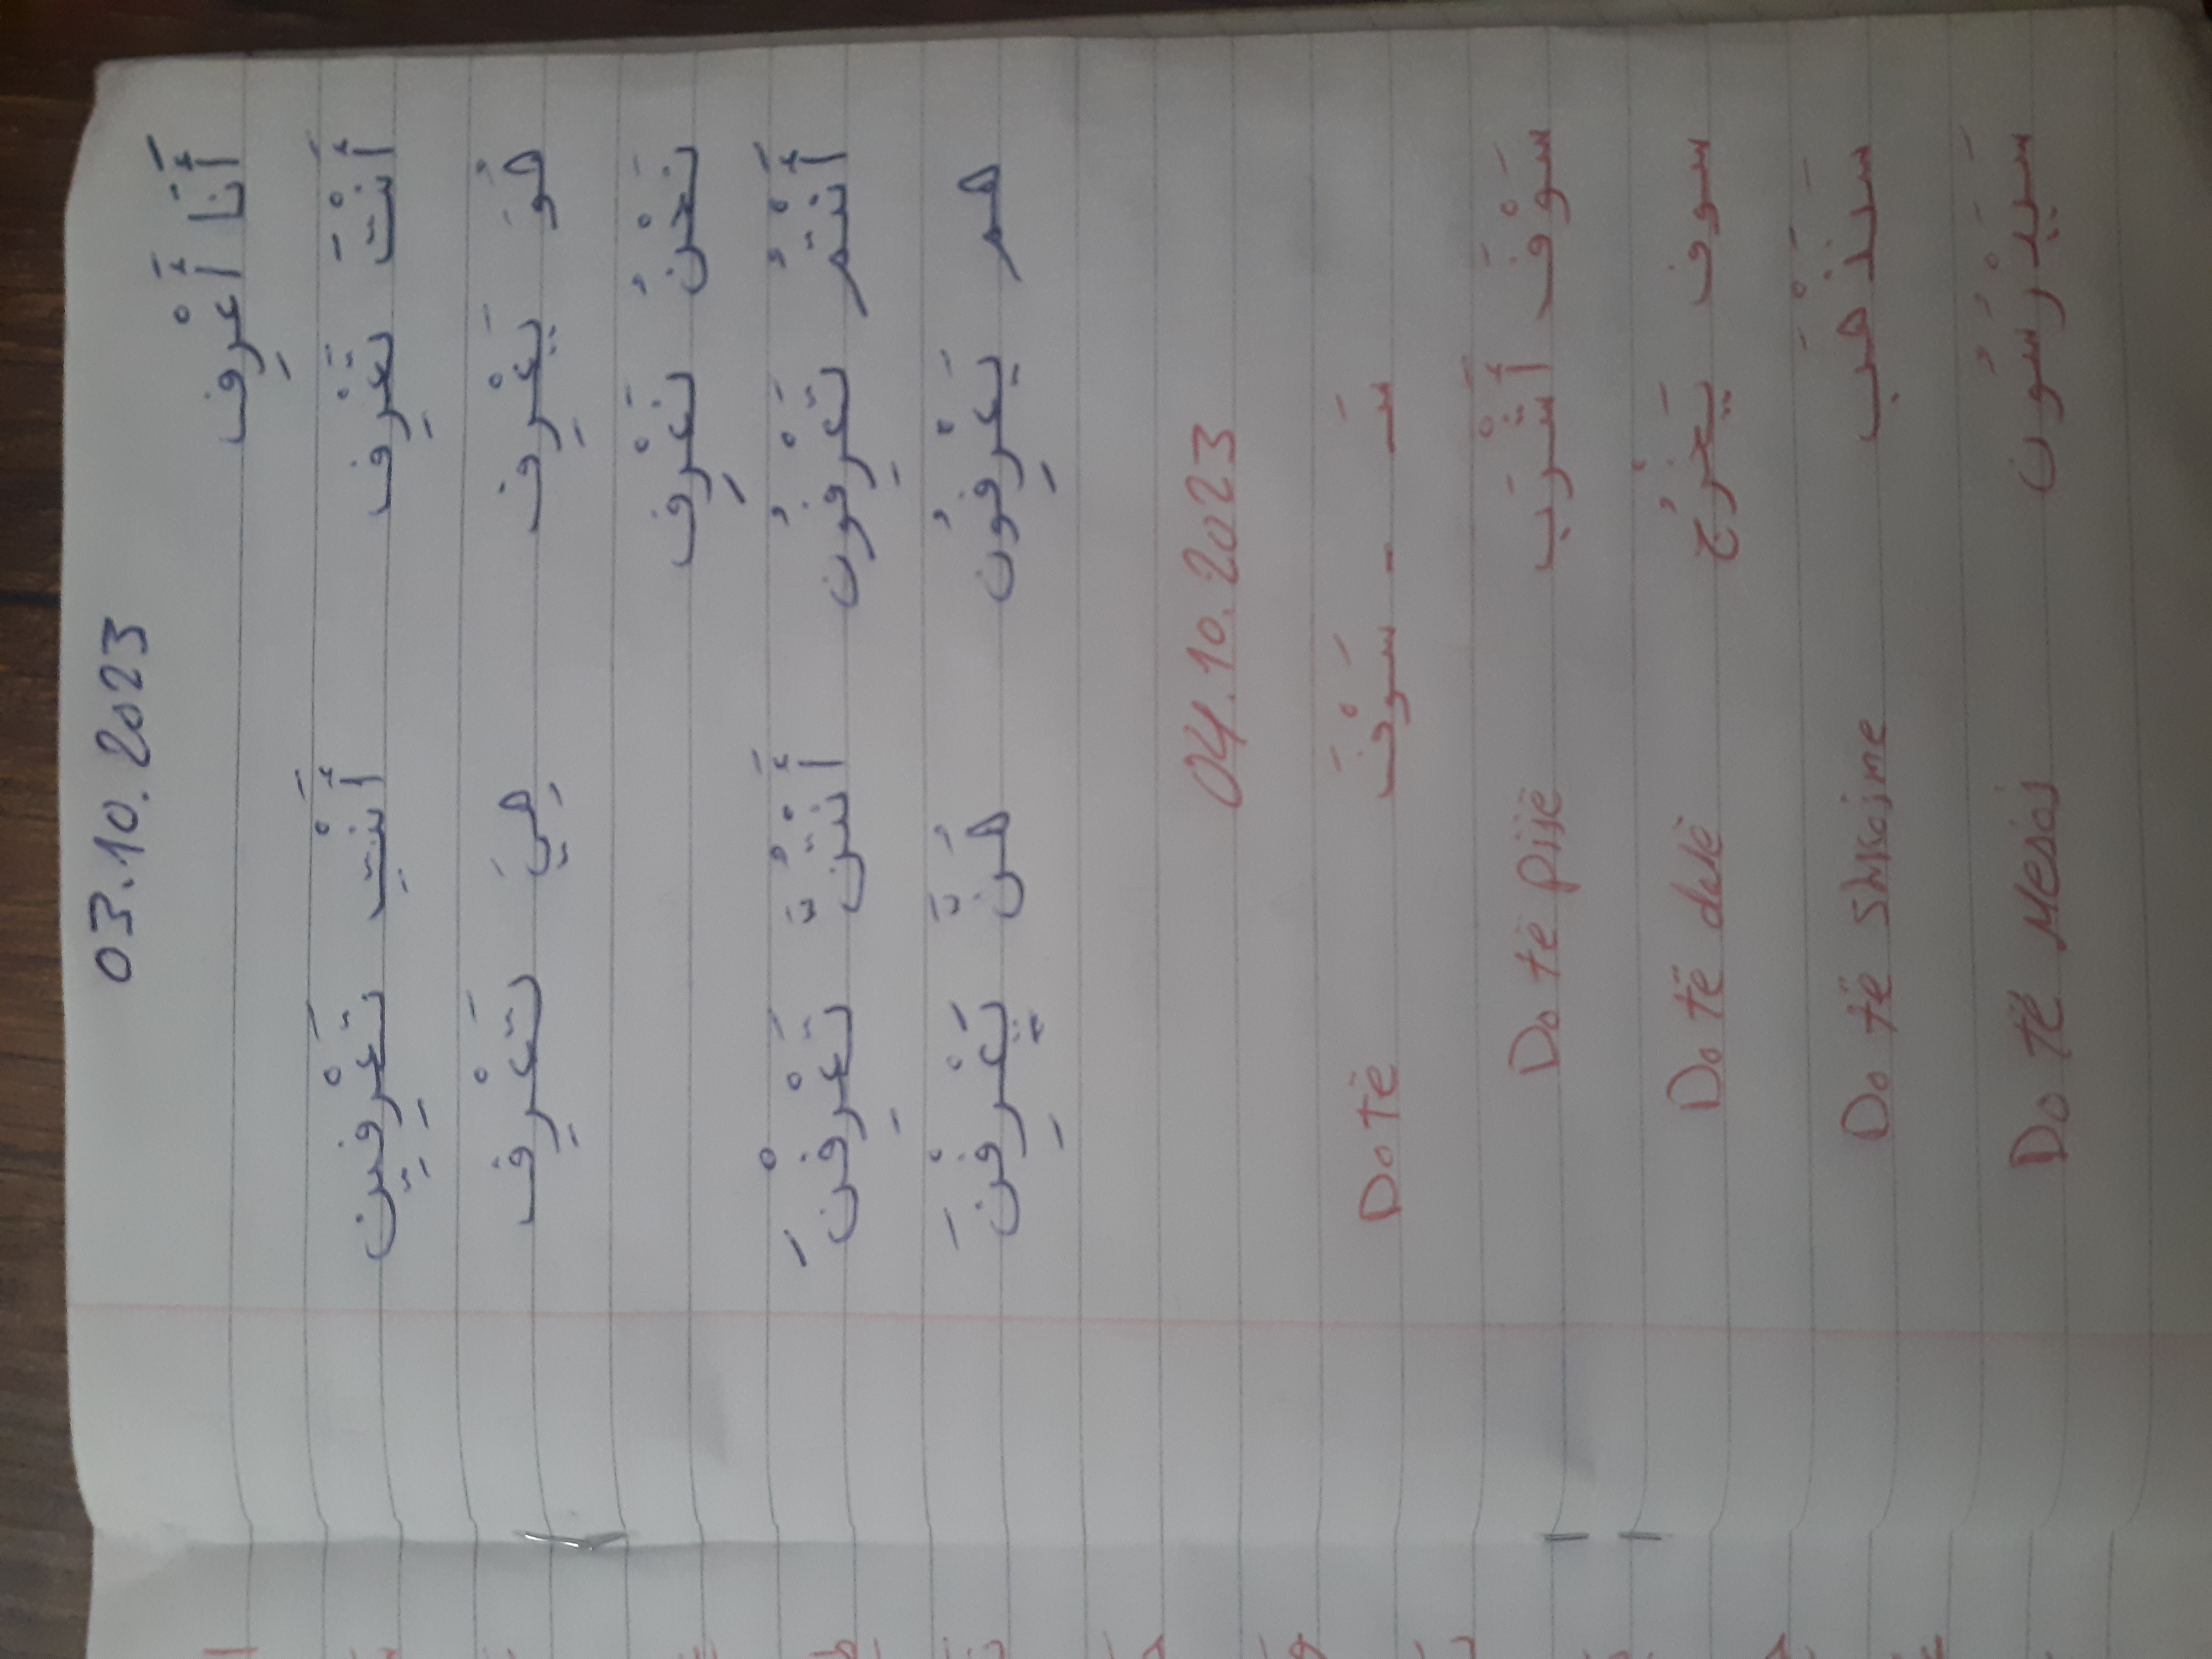 03.10.2023
أَنَا أَعْرِف
أَنْتَ تَعْرِف أَنْتِ تَعْرِفِين
هُوَ يَعْرِف هِيَ تَعْرِف
نَحْنُ نَعْرِف
أَنْتُمْ تَعْرِفُون أَنْتُنَّ تَعْرِفْنَ
هم يَعْرِفُون هُنَّ يَعْرِفْنَ
04.10.2023
سَـ - سَوْفَ Do të
سَوْفَ أَشْرَب Do të pijë
سوف يَخْرُج Do të dalë
سَنَذْهَب Do të shkojme
سَيَدْرُسُون Do të Mesoj